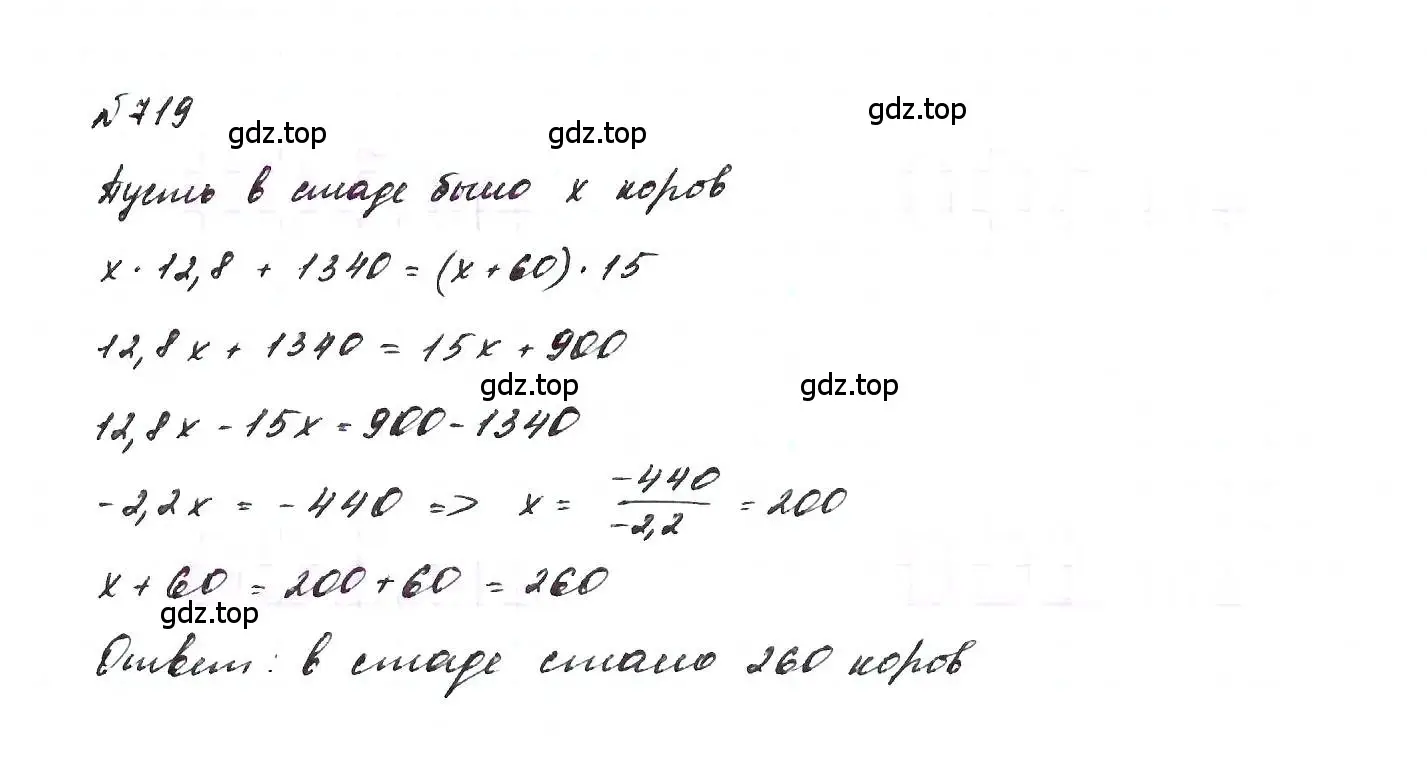 №719
gdz.top gdz.top gdz.top
Пусть в стаде было x коров
x · 12,8 + 1340 = (x + 60) · 15
12,8x + 1340 = 15x + 900
gdz.top gdz.top
12,8x - 15x = 900 - 1340
-2,2x = -440 => x = -440/-2,2 = 200
x + 60 = 200 + 60 = 260
gdz.top
Ответ: в стаде стало 260 коров